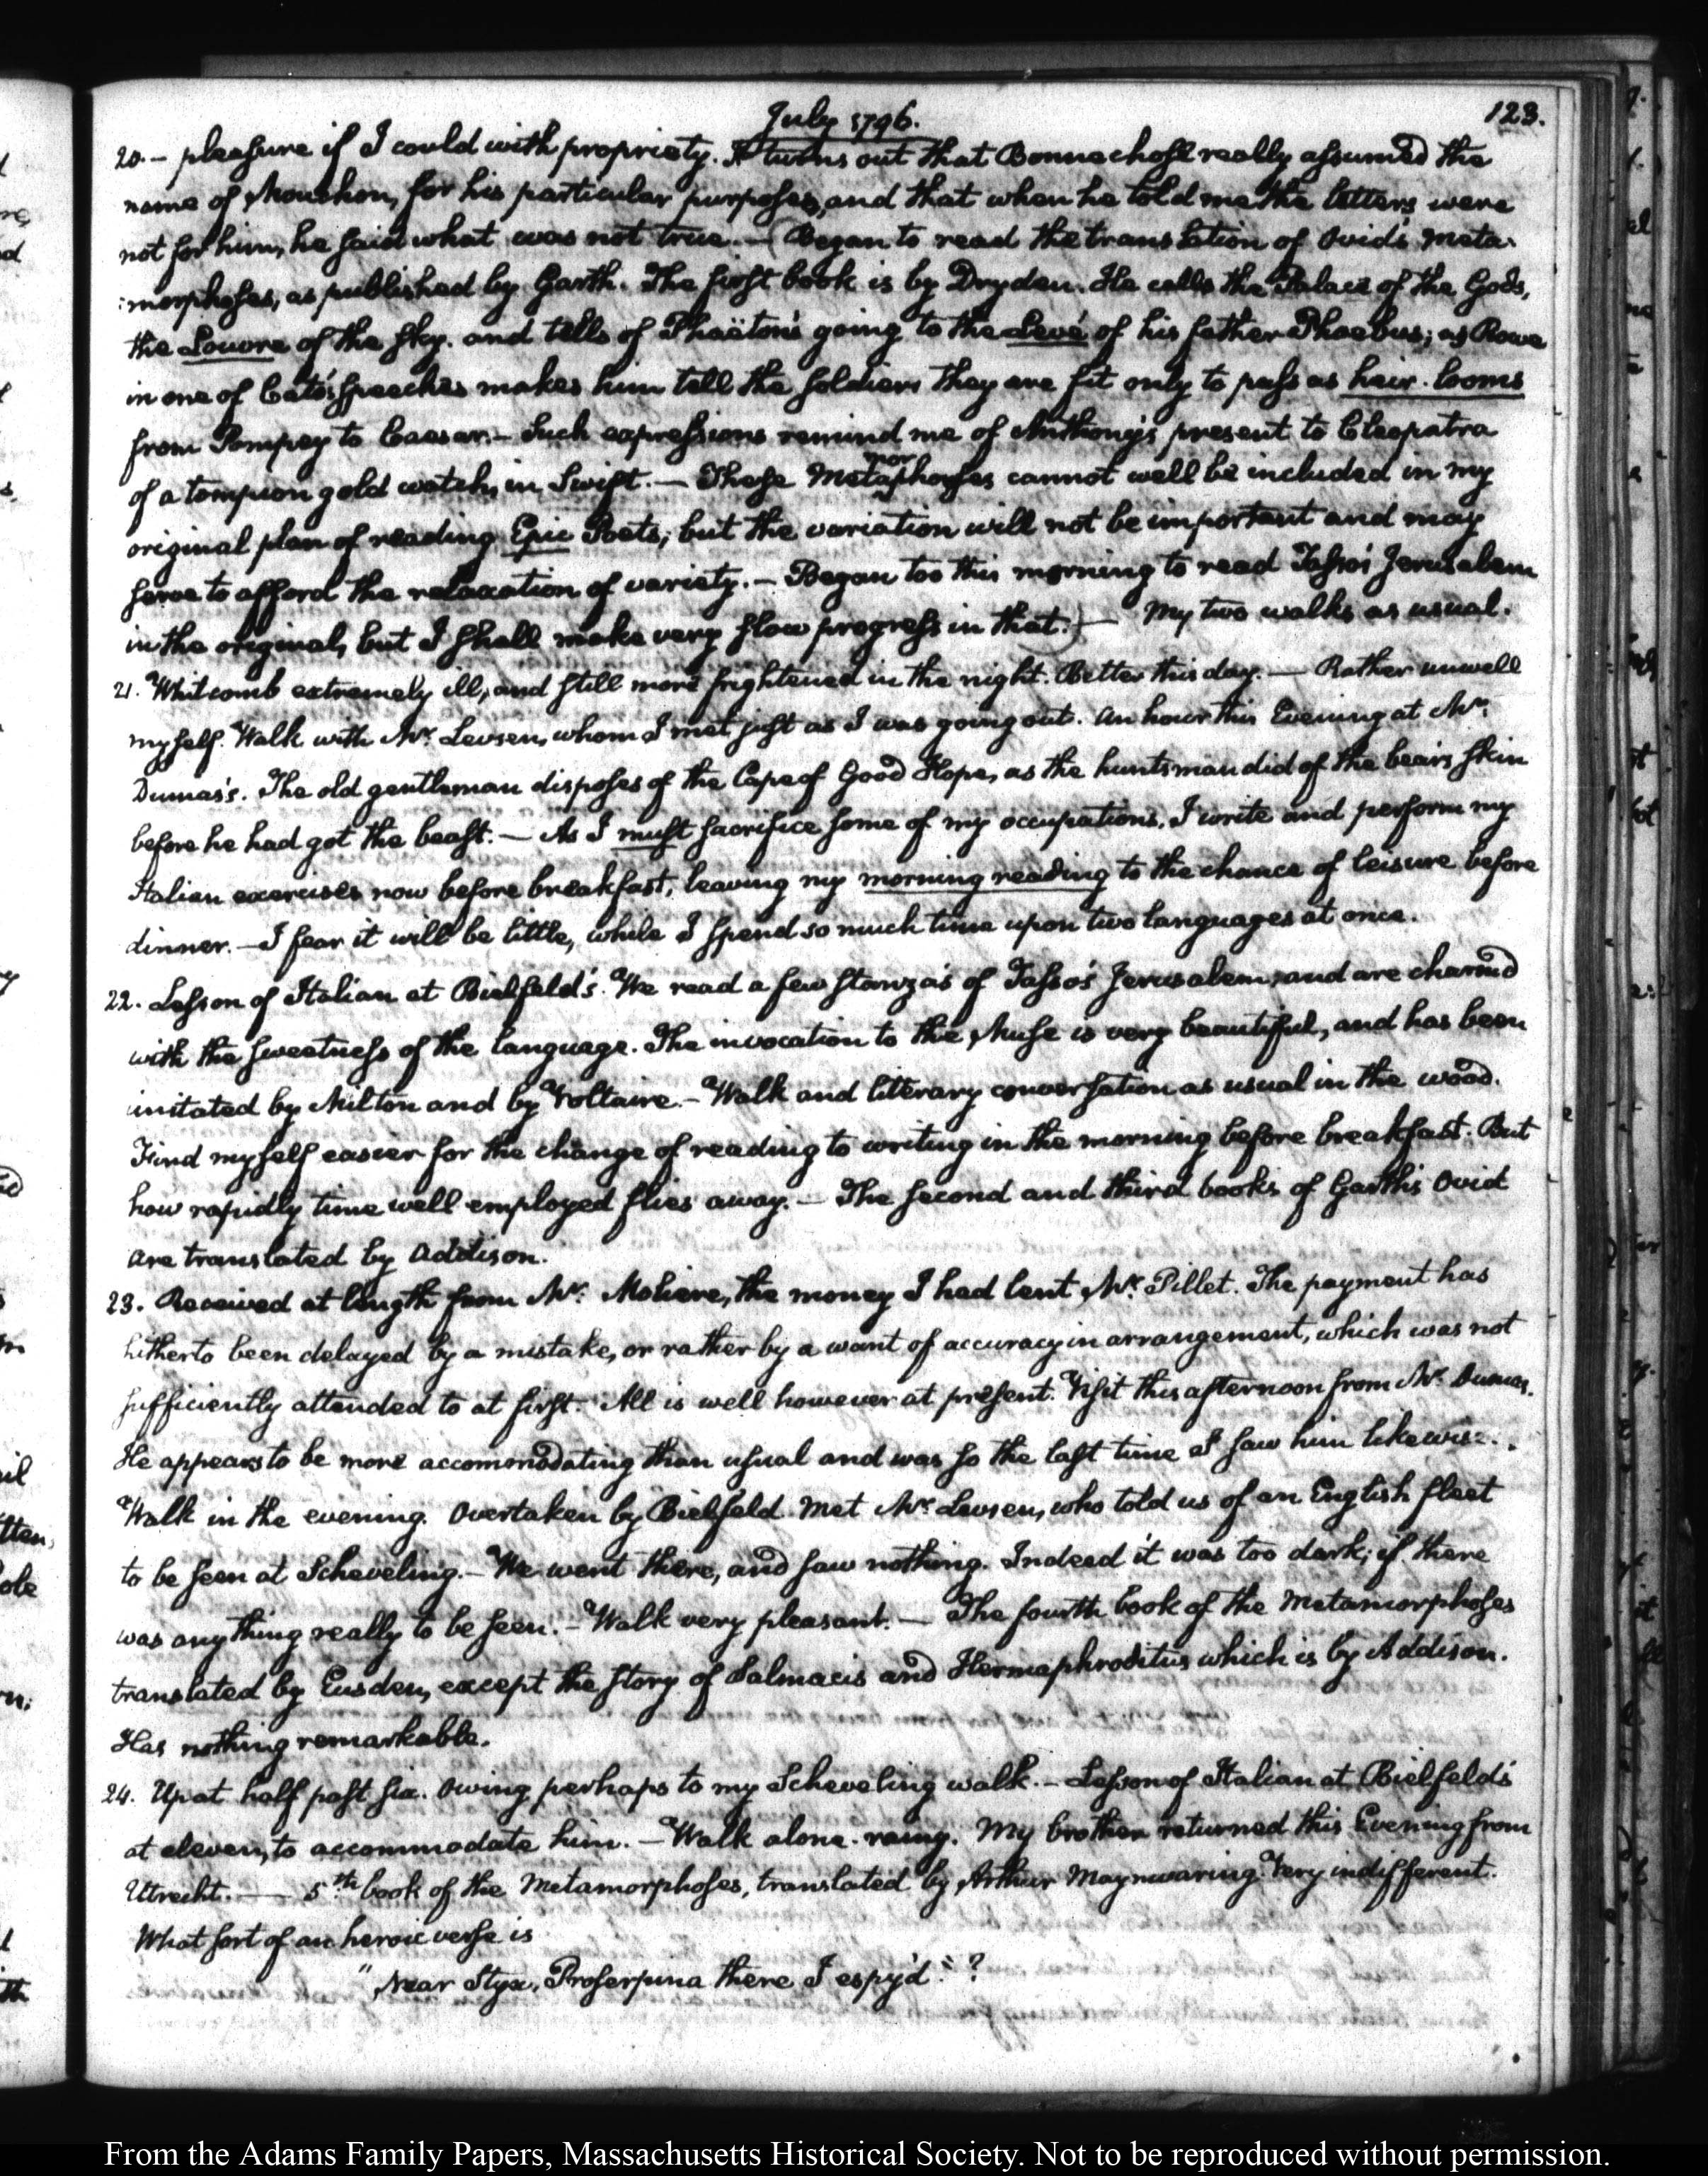 July 1796.
123.
20.- pleasure if I could with propriety. It turns out that Bonnechose really assumed the
name of Mouchon, for his particular purposes, and that when he told me the letters were
not for him, he said what was not true. — (Began to read the translation of Ovid's Meta-
:morphoses, as published by Garth. The first book is by Dryden. He calls the Palace of the Gods,
the Louvre of the sky. and tells of Phaëton's going to the Levé of his father Phoebus; as Rowe
in one of Cato's speeches makes him tell the soldiers they are fit only to pass as heir-looms
from Pompey to Caesar.- Such expressions remind me of Anthony's present to Cleopatra
of a tompion gold watch, in Swift. — These Metamorphoses cannot well be included in my
original plan of reading Epic Poets; but the variation will not be important and may
serve to afford the relaxation of variety. — Began too this morning to read Tasso's Jerusalem
in the original, but I shall make very slow progress in that.) — My two walks as usual.
21. Whitcomb extremely ill, and still more frightened in the night. Better this day. — Rather unwell
myself. Walk with Mr. Levsen, whom I met just as I was going out. An hour this Evening at Mr.
Dumas's. The old gentleman disposes of the Cape of Good Hope, as the huntsman did of the bear's skin
before he had got the beast. — As I must sacrifice some of my occupations. I write and perform my
Italian exercises now before breakfast, leaving my morning reading to the chance of leisure before
dinner. — I fear it will be little, while I spend so much time upon two languages at once.
22. Lesson of Italian at Bielfeld's. We read a few stanza's of Tasso's Jerusalem, and are charmed
with the sweetness of the language. The invocation to the Muse is very beautiful, and has been
imitated by Milton and by Voltaire. - Walk and literary conversation as usual in the wood.
Find myself easier for the change of reading to writing in the morning before breakfast. But
how rapidly time well employed flies away. — The second and third books of Garth's Ovid
are translated by Addison.
23. Received at length from Mr. Moliere, the money I had lent Mr. Pillet. The payment has
hitherto been delayed by a mistake, or rather by a want of accuracy in arrangement, which was not
sufficiently attended to at first. All is well however at present. Visit this afternoon from Mr. Dumas.
He appears to be more accommodating than usual and was so the last time I saw him likewise.
Walk in the evening. Overtaken by Bielfeld. Met Mr. Levsen, who told us of an English fleet
to be seen at Scheveling. — We went there, and saw nothing. Indeed it was too dark; if there
was any thing really to be seen. - Walk very pleasant. — The fourth book of the Metamorphoses
translated by Eusden, except the story of Salmacis and Hermaphroditus which is by Addison.
Has nothing remarkable.
24. Up at half past six. Owing perhaps to my Scheveling walk. - Lesson of Italian at Bielfeld's
at eleven, to accommodate him. — Walk alone. rainy. My brother returned this Evening from
Utrecht. — 5th book of the Metamorphoses, translated by Arthur Maynwaring. Very indifferent.
What sort of an heroic verse is
"Near Styx, Proserpina there I espy'd."?
From the Adams Family Papers, Massachusetts Historical Society. Not to be reproduced without permission.